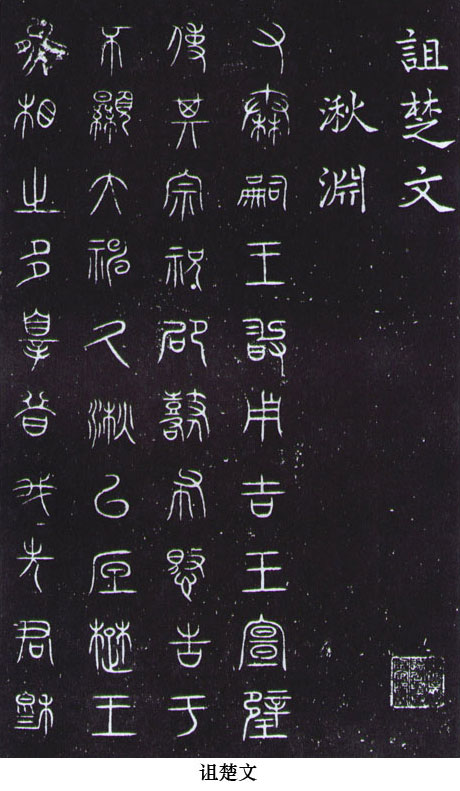 詛楚文
湫淵
又秦嗣王敢用吉玉宣璧
使其宗祝邵鼛布愍告于
不顯大神久湫以底楚王
熊相之多辠昔我先君穆
诅楚文